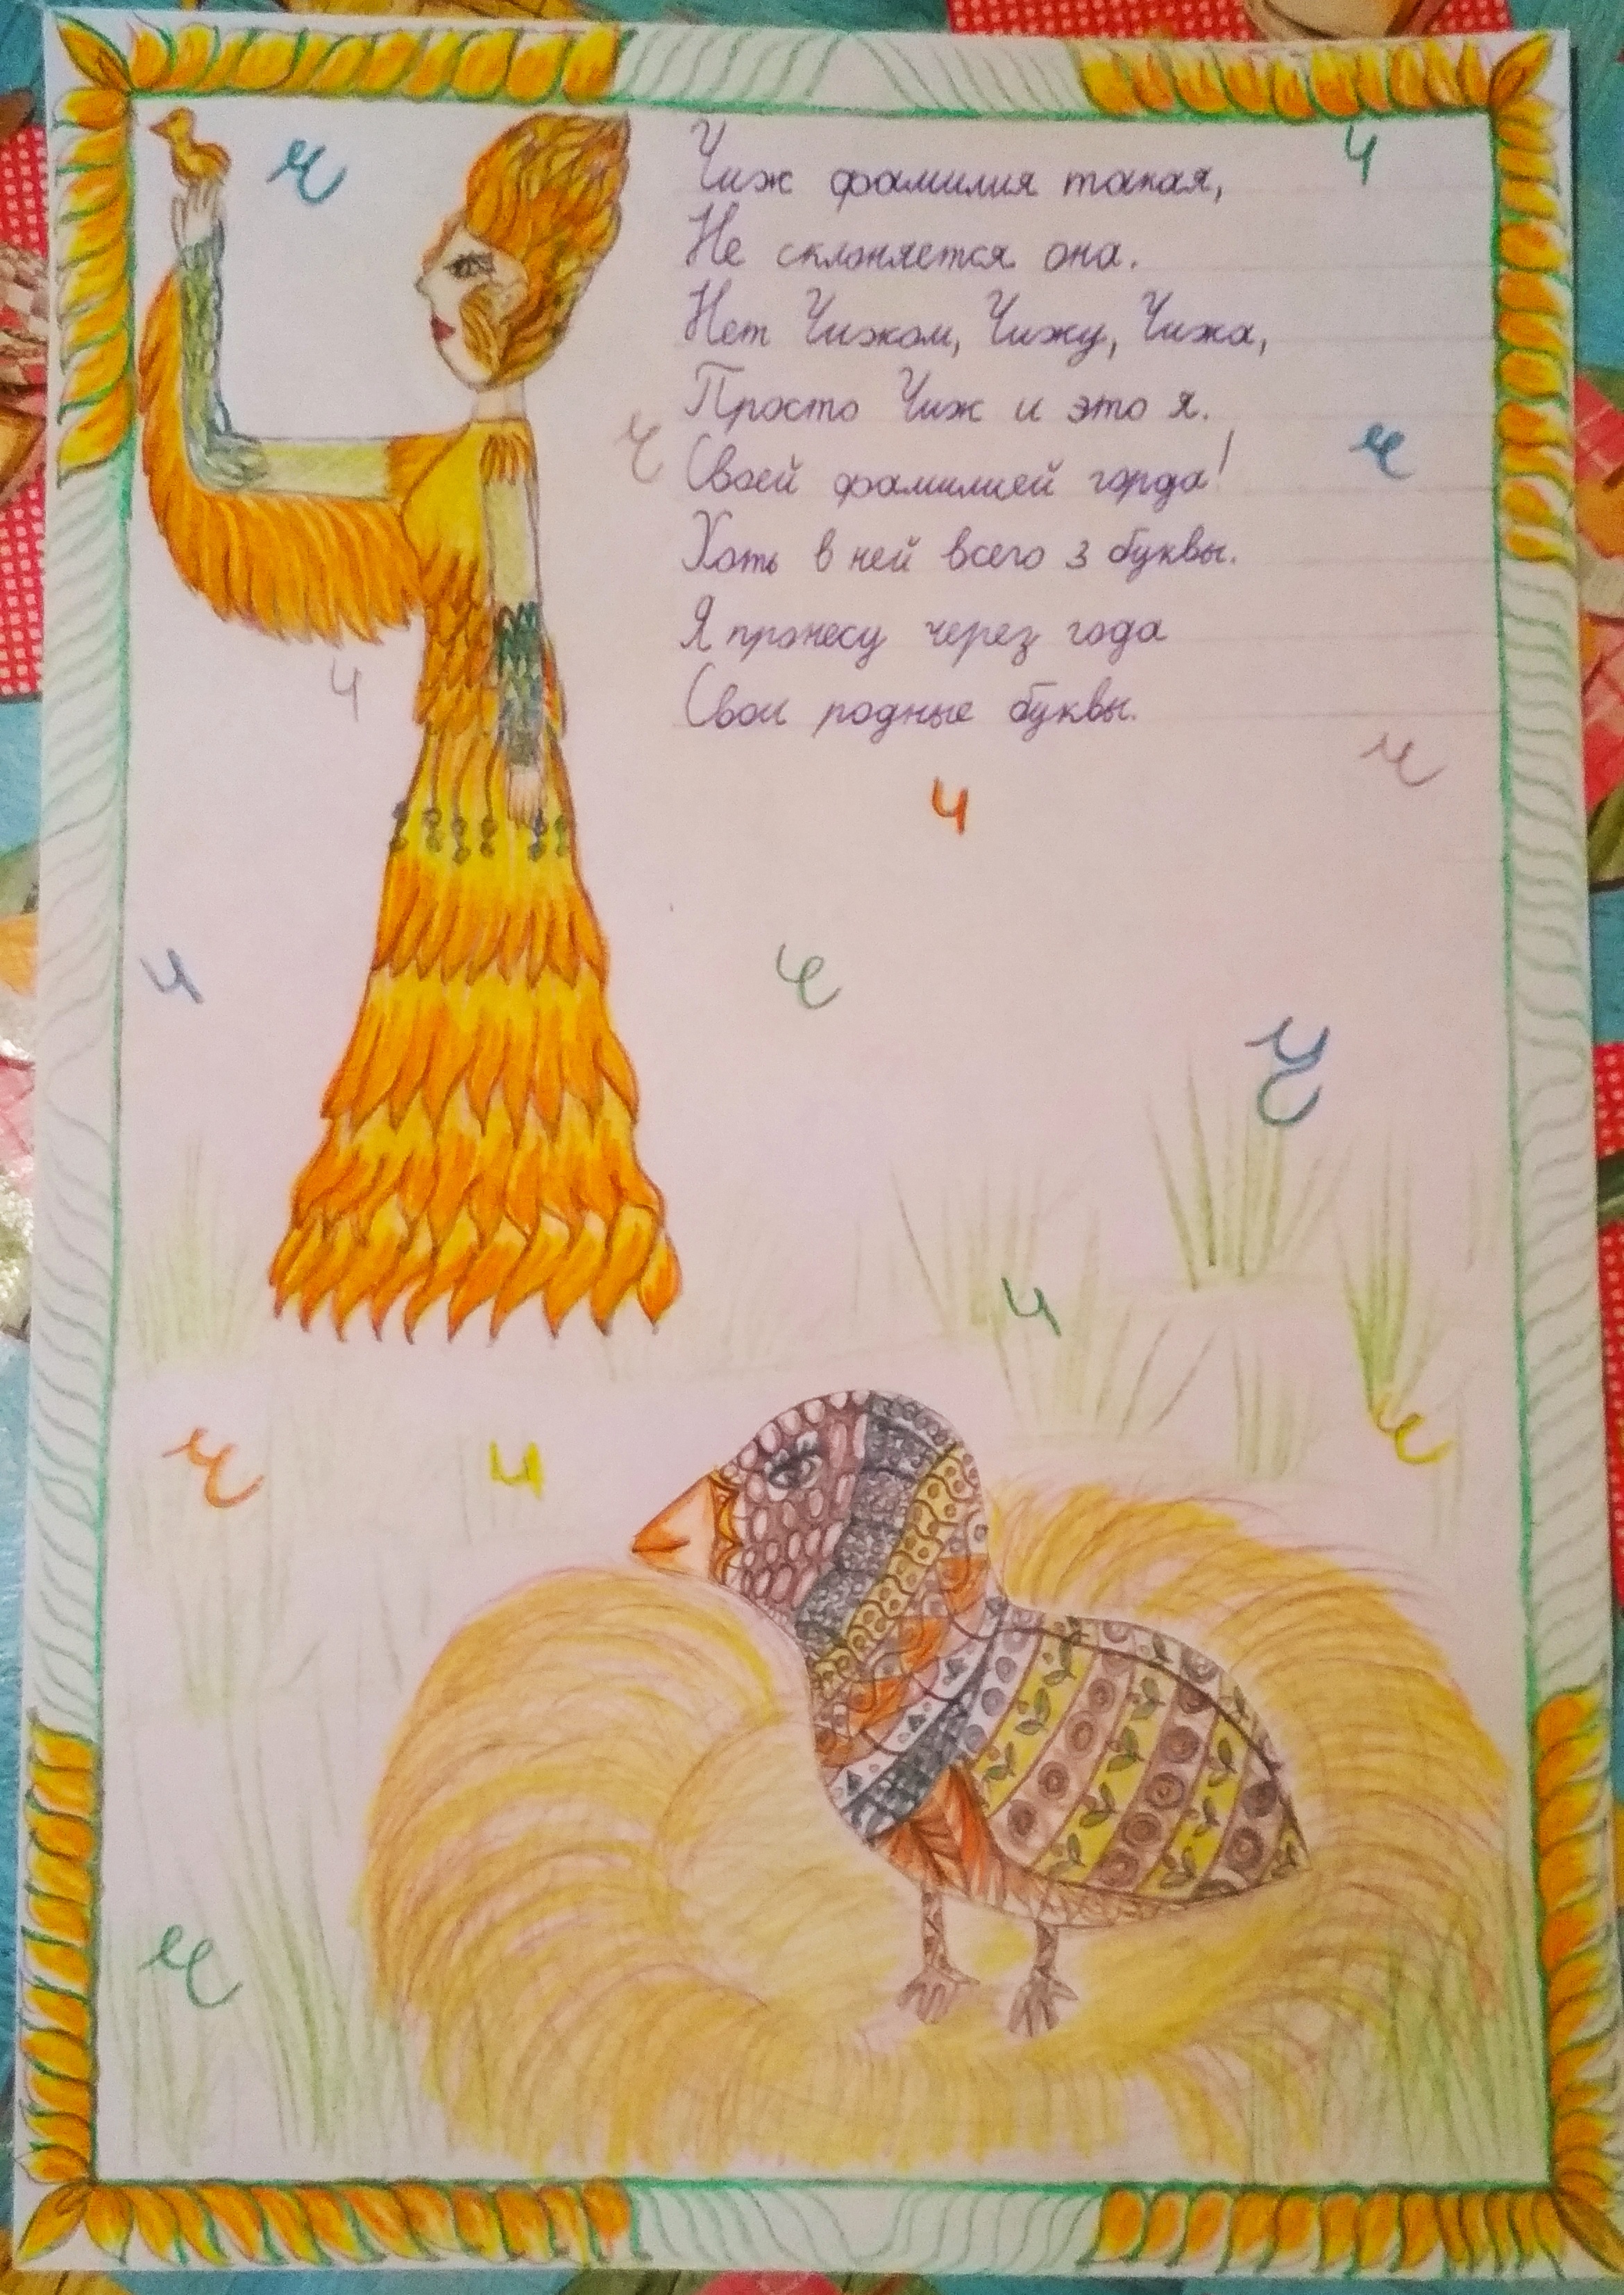 Чиж фамилия такая,
Не склоняется она.
Нет Чижом, Чижу, Чижа,
Просто Чиж и это я.
Своей фамилией горда!
Хоть в ней всего 3 буквы.
Я пронесу через года
Свои родные буквы.
ч
ч
ч
ч
ч
ч
ч
ч
ч
Ч
ч
ч
ч
ч
ч